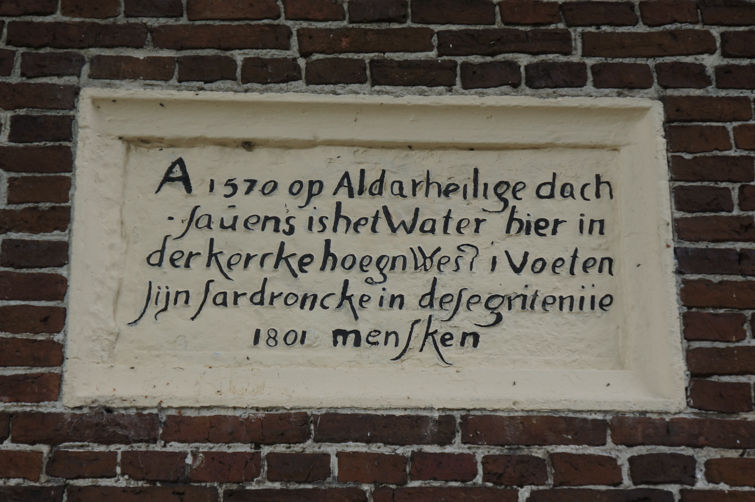 A 1570 op Aldarheilige dach
·sauens is het Water hier in
der kercke hoegn Wes? i Voeten
sijn sardroncke in desegriteniie
1801 mensken